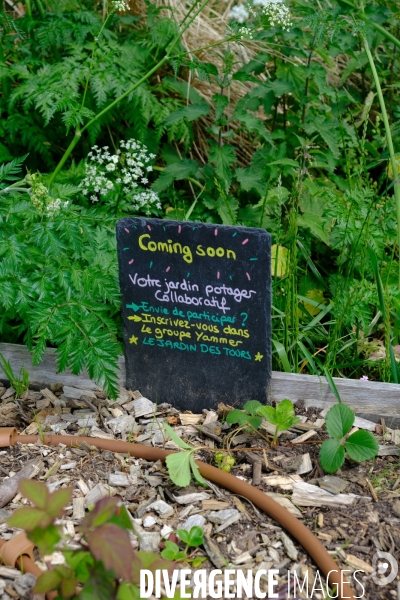 Coming soon
Votre jardin potager
Collaboratif
Envie de participer ?
Inscrivez-vous dans
le groupe Yammer
LE JARDIN DES TOURS
DIVERGENCE IMAGES